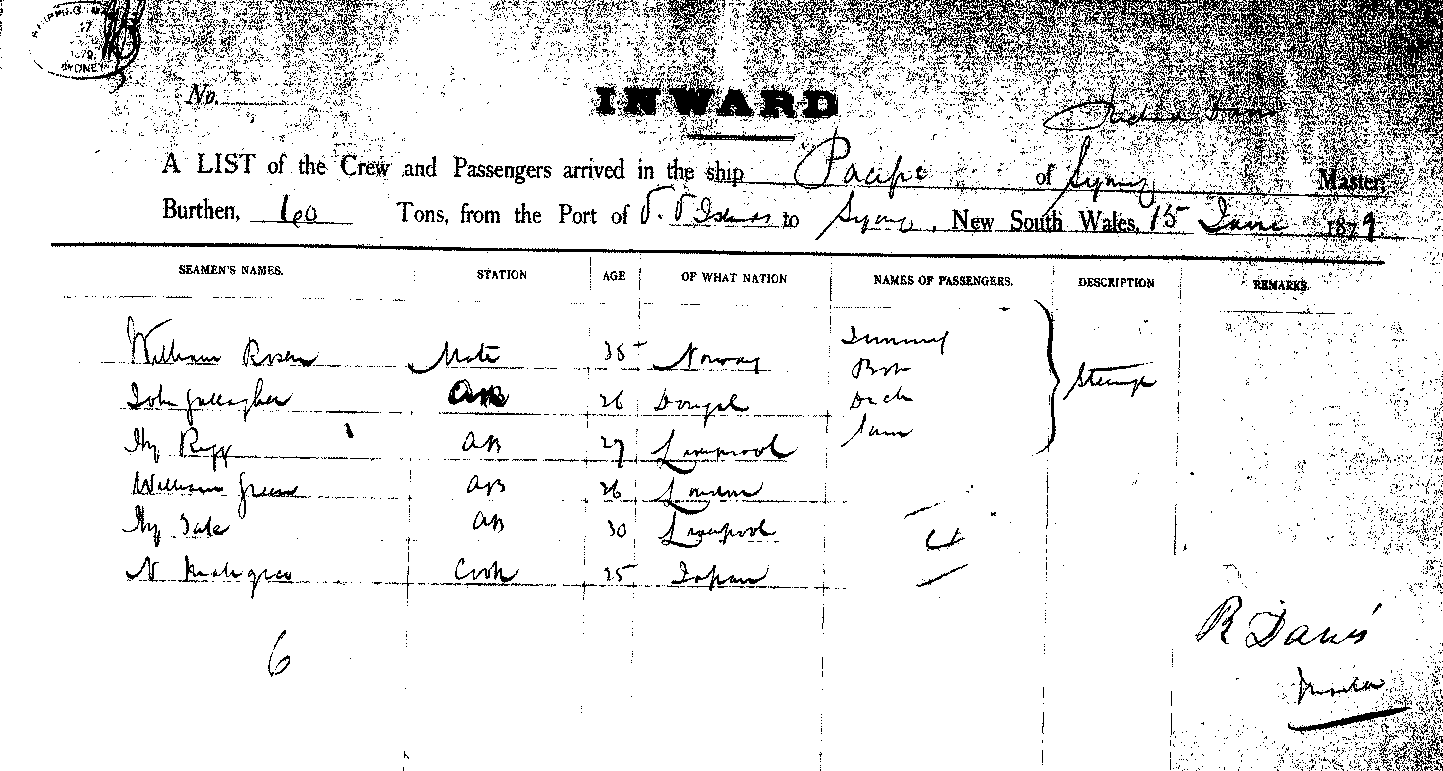 SHIPPING
17
1879
SYDNEY
No.
INWARD
Richard Davis
A LIST of the Crew and Passengers arrived in the ship Pacific of Sydney Master,
Burthen, 60 Tons, from the Port of Islands to Sydney, New South Wales, 15 June 1879
SEAMEN'S NAMES. STATION AGE OF WHAT NATION NAMES OF PASSENGERS. DESCRIPTION REMARKS.
William Rosen Mate 35 Norway
John Gallagher AB 26 Donegal
Hy AB 27 Liverpool
William Green AB 26 London
Hy Tate AB 30 Liverpool
N Cook 25 Japan
Jimmy
Bob
Dick
Sam
Steerage
4
6
R Davis
Master